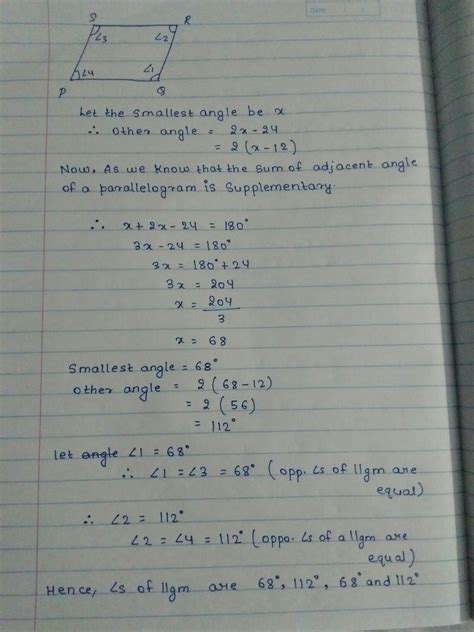 S R
∠3 ∠2
∠4 ∠1
P Q
Let the Smallest angle be x
∴ Other angle = 2x-24
= 2(x-12)
Now, As we know that the sum of adjacent angle
of a parallelogram is Supplementary
∴ x + 2x - 24 = 180°
3x - 24 = 180°
3x = 180° + 24
3x = 204
x = 204/3
x = 68
Smallest angle = 68°
Other angle = 2(68-12)
= 2(56)
= 112°
let angle ∠1 = 68°
∴ ∠1 = ∠3 = 68° (opp. ∠s of llgm are
equal)
∴ ∠2 = 112°
∠2 = ∠4 = 112° (oppo. ∠s of a llgm are
equal)
Hence, ∠s of llgm are 68°, 112°, 68° and 112°